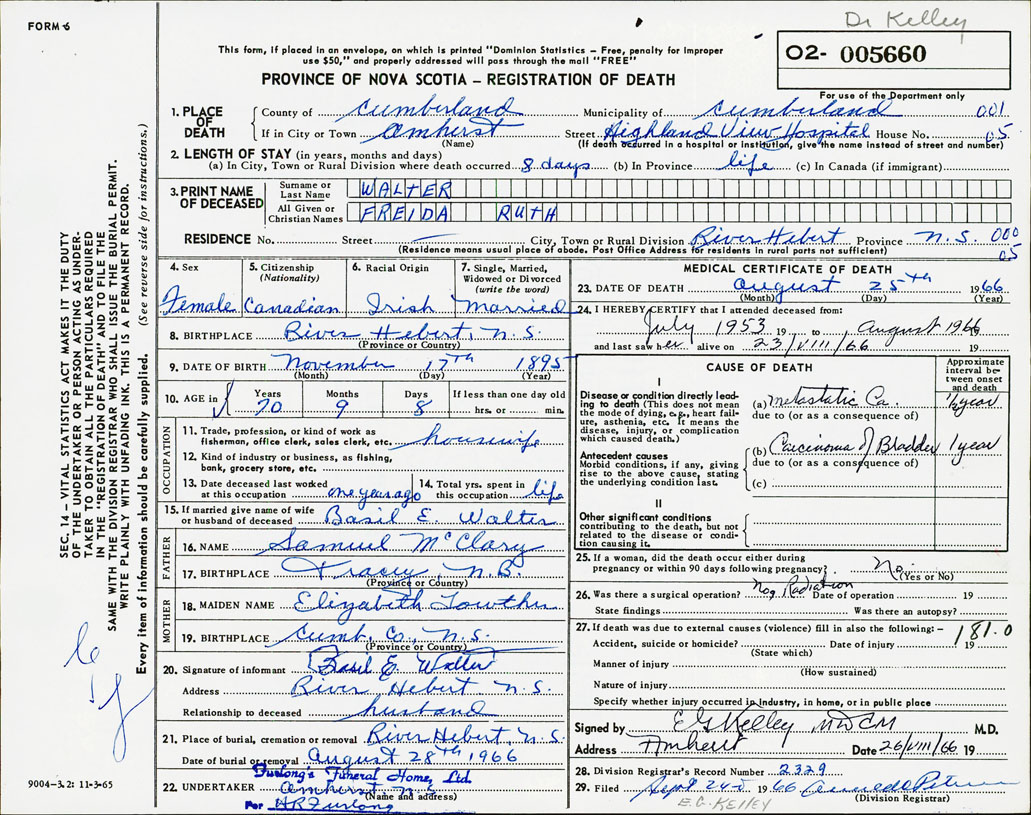 Dr Kelley
FORM 6
O2- 005660
This form, if placed in an envelope, on which is printed "Dominion Statistics – Free, penalty for improper
use $50," and properly addressed will pass through the mail "FREE"
PROVINCE OF NOVA SCOTIA – REGISTRATION OF DEATH
For use of the Department only
1. PLACE OF DEATH County of Cumberland Municipality of Cumberland 001
If in City or Town Amherst Street Highland View Hospital House No. 05
(Name) (If death occurred in a hospital or institution, give the name instead of street and number)
2. LENGTH OF STAY (in years, months and days)
(a) In City, Town or Rural Division where death occurred 8 days (b) In Province life (c) In Canada (if immigrant)
3. PRINT NAME OF DECEASED Surname or Last Name WALTER
All Given or Christian Names FREIDA RUTH
RESIDENCE No. Street City, Town or Rural Division River Hebert Province N.S. 000
(Residence means usual place of abode. Post Office Address for residents in rural parts not sufficient) 05
4. Sex 5. Citizenship (Nationality) 6. Racial Origin 7. Single, Married, Widowed or Divorced (write the word)
Female Canadian Irish Married
8. BIRTHPLACE River Hebert, N.S.
(Province or Country)
9. DATE OF BIRTH November 17th 1895
(Month) (Day) (Year)
10. AGE in Years Months Days If less than one day old
70 9 8 hrs. or min.
OCCUPATION
11. Trade, profession, or kind of work as fisherman, office clerk, sales clerk, etc. housewife
12. Kind of industry or business, as fishing, bank, grocery store, etc.
13. Date deceased last worked at this occupation one year ago 14. Total yrs. spent in this occupation life
15. If married give name of wife or husband of deceased Basil E. Walter
FATHER
16. NAME Samuel McClary
17. BIRTHPLACE Tracey, N.B.
(Province or Country)
MOTHER
18. MAIDEN NAME Elizabeth Lowther
19. BIRTHPLACE Cumb. Co., N.S.
(Province or Country)
20. Signature of informant Basil E. Walter
Address River Hebert N.S.
Relationship to deceased husband
21. Place of burial, cremation or removal River Hebert N.S.
Date of burial or removal August 28th 1966
Furlong's Funeral Home, Ltd.
22. UNDERTAKER Amherst, N.S.
(Name and address)
Per HR Furlong
MEDICAL CERTIFICATE OF DEATH
23. DATE OF DEATH August 25th 1966
(Month) (Day) (Year)
24. I HEREBY CERTIFY that I attended deceased from:
July 1953 19 to August 1966
and last saw her alive on 23/VIII/66 19
CAUSE OF DEATH Approximate interval between onset and death
I
Disease or condition directly leading to death (This does not mean the mode of dying, e.g., heart failure, asthenia, etc. It means the disease, injury, or complication which caused death.)
(a) Metastatic Ca. 1/2 year
due to (or as a consequence of)
Antecedent causes
Morbid conditions, if any, giving rise to the above cause, stating the underlying condition last.
(b) Carcinoma of Bladder 1 year
due to (or as a consequence of)
(c)
II
Other significant conditions
contributing to the death, but not related to the disease or condition causing it.
25. If a woman, did the death occur either during
pregnancy or within 90 days following pregnancy? No.
(Yes or No)
26. Was there a surgical operation? Radiation Date of operation 19
State findings Was there an autopsy?
27. If death was due to external causes (violence) fill in also the following: – 181.0
Accident, suicide or homicide? Date of injury 19
(State which)
Manner of injury
(How sustained)
Nature of injury
Specify whether injury occurred in industry, in home, or in public place
Signed by E G Kelley MD CM M.D.
Address Amherst Date 26/VIII/66 19
28. Division Registrar's Record Number 2329
29. Filed Sept 24 1966
(Division Registrar)
E. G. KELLEY
SEC. 14 – VITAL STATISTICS ACT MAKES IT THE DUTY
OF THE UNDERTAKER OR PERSON ACTING AS UNDER-
TAKER TO OBTAIN ALL THE PARTICULARS REQUIRED
IN THE "REGISTRATION OF DEATH" AND TO FILE THE
SAME WITH THE DIVISION REGISTRAR WHO SHALL ISSUE THE BURIAL PERMIT.
WRITE PLAINLY WITH UNFADING INK. THIS IS A PERMANENT RECORD.
Every item of information should be carefully supplied. (See reverse side for instructions.)
9004-3.2: 11-3-65